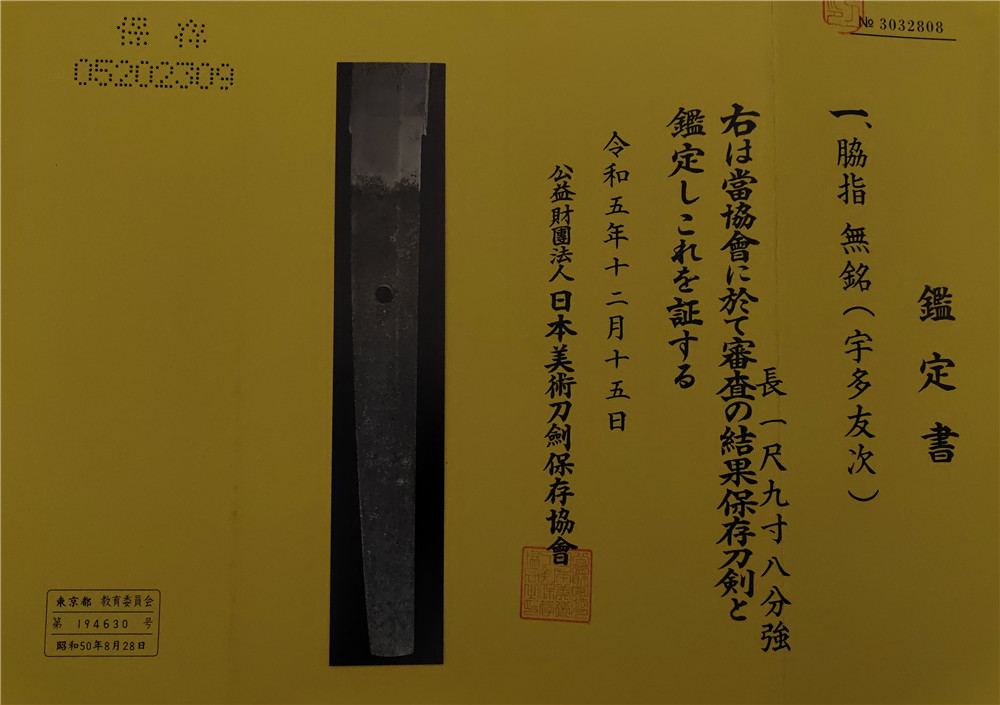 № 3032808
鑑定書
一、脇指 無銘(宇多友次)
長 一尺九寸八分強
右は當協會に於て審査の結果保存刀剣と
鑑定しこれを証する
令和五年十二月十五日
公益財團法人 日本美術刀劍保存協會
保存
05202309
東京都 教育委員会
第 194630 号
昭和50年8月28日